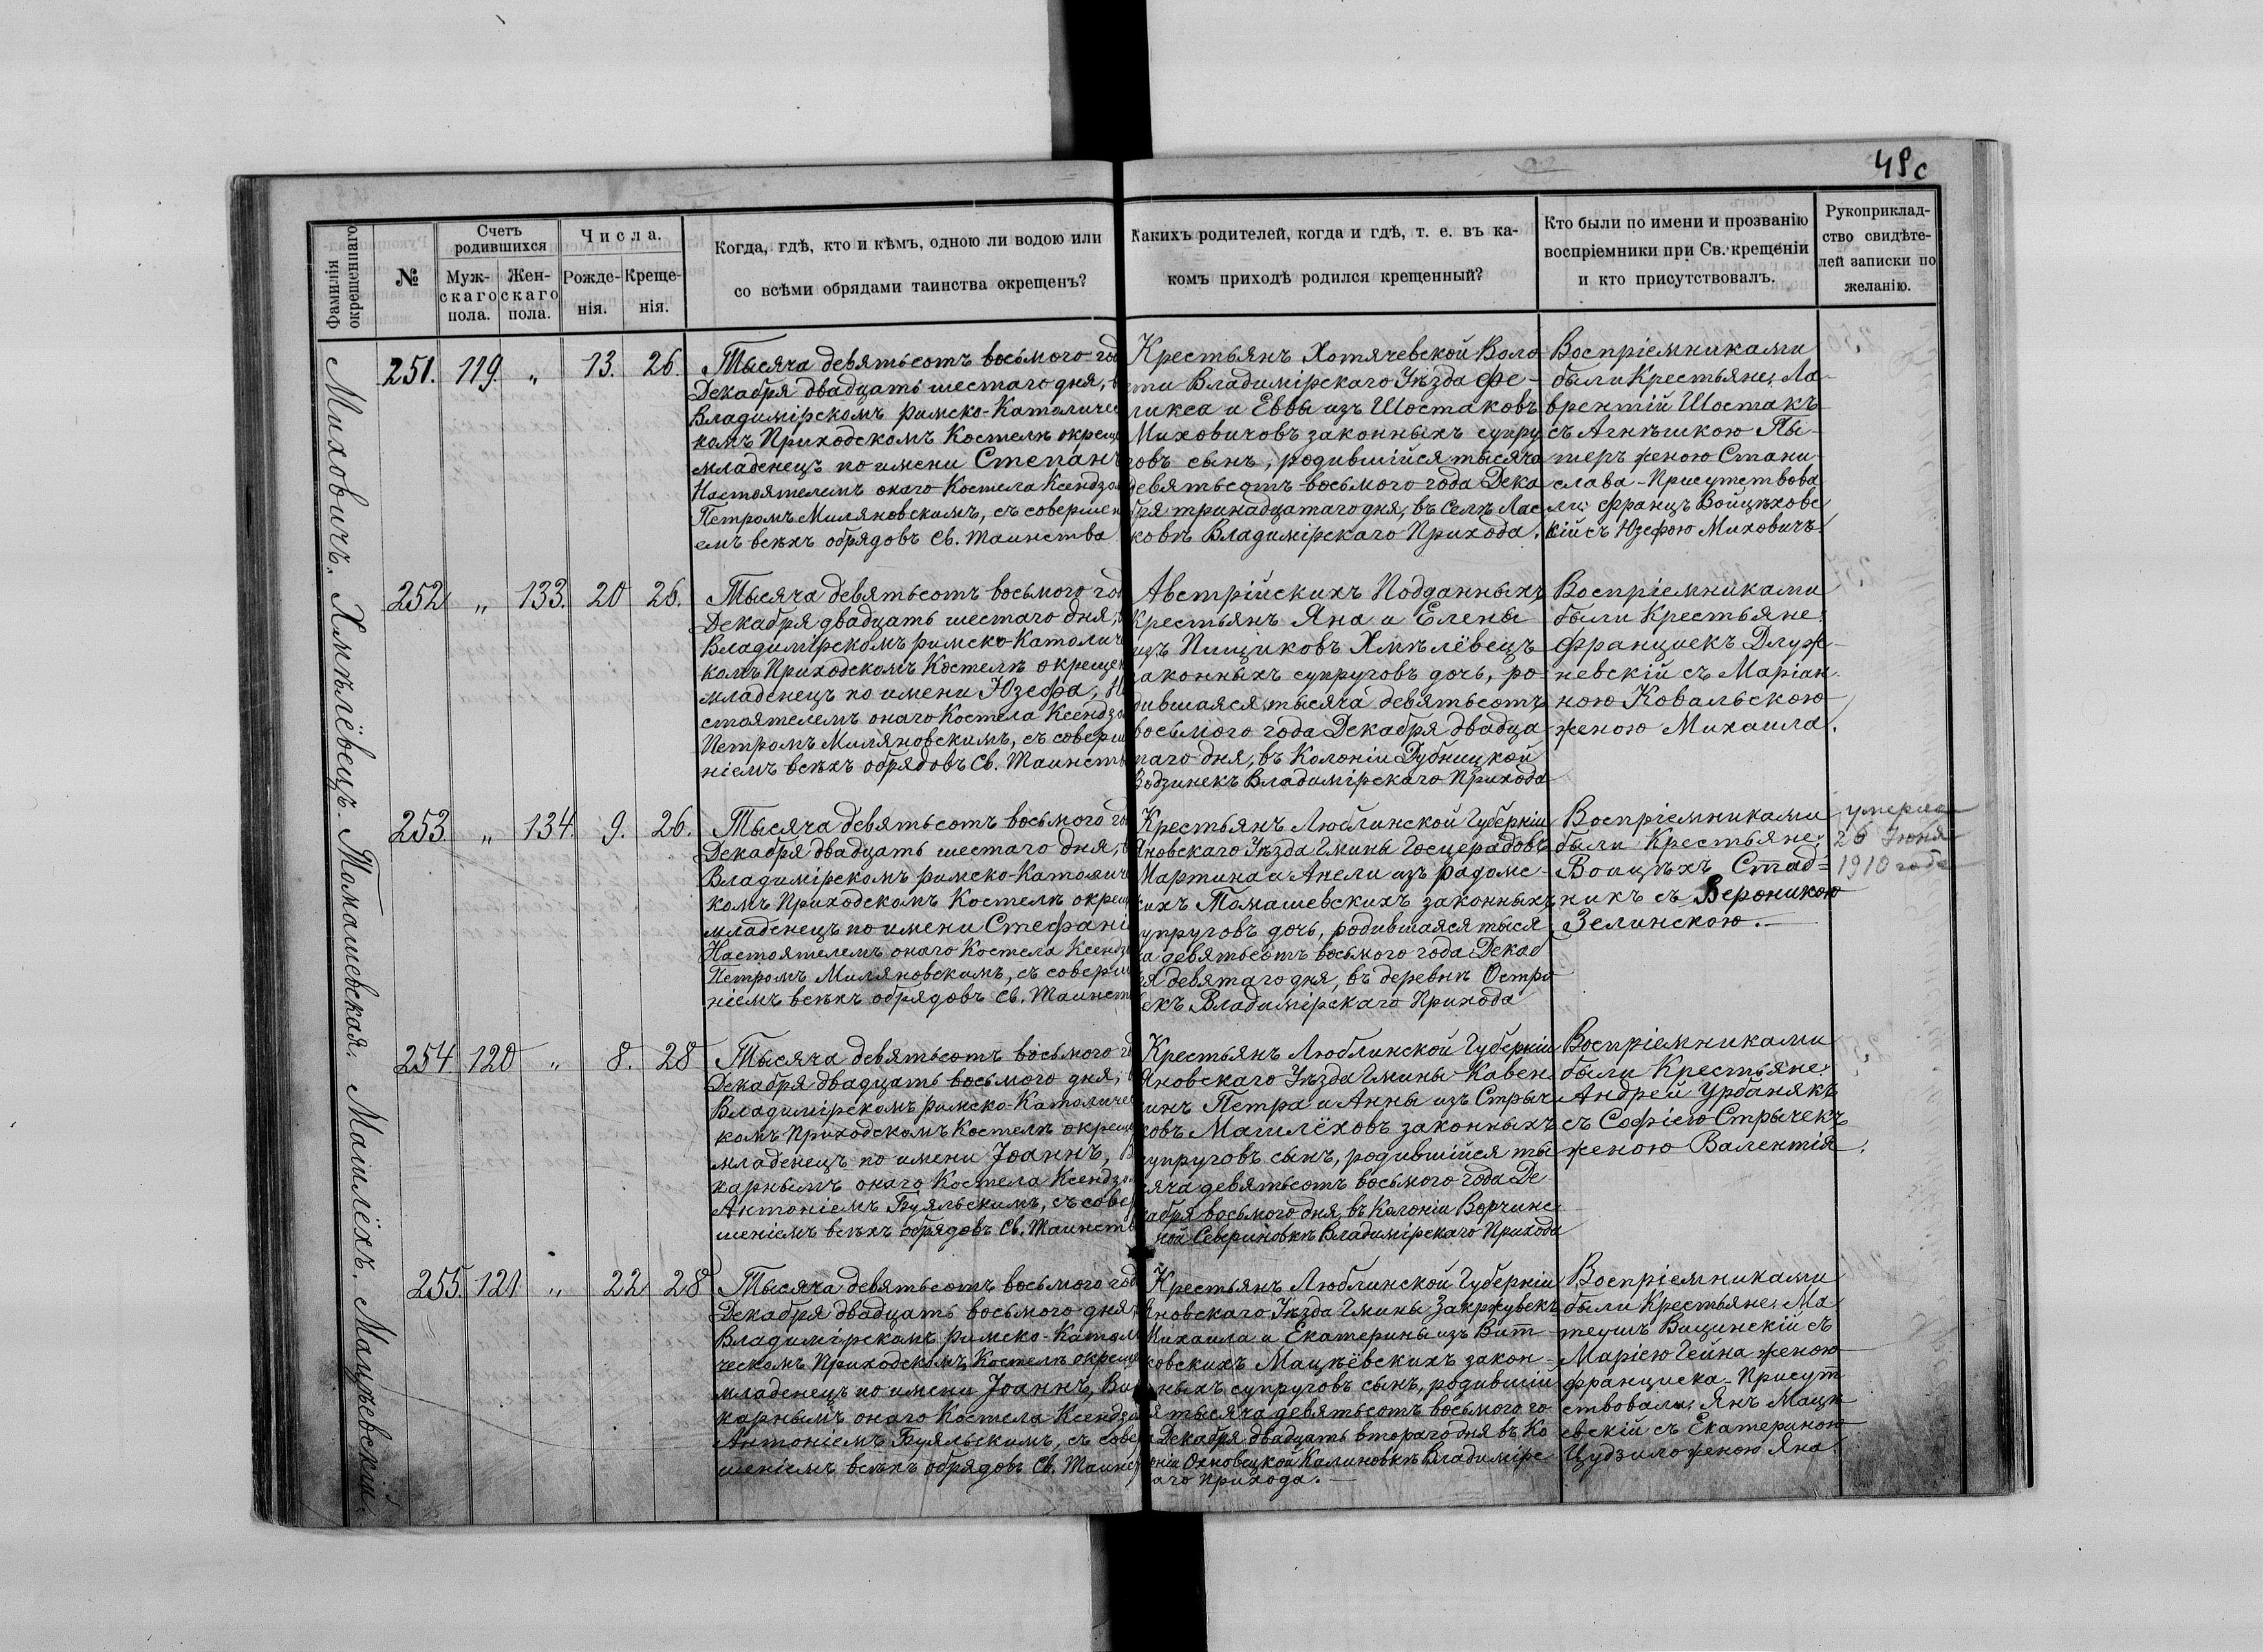 49 с
Фамилія окрещеннаго
№
Счетъ родившихся
Муж-скаго пола.
Жен-скаго пола.
Числа.
Рожде-нія.
Креще-нія.
Когда, гдѣ, кто и кѣмъ, одною ли водою или
со всѣми обрядами таинства окрещенъ?
Какихъ родителей, когда и гдѣ, т. е. въ ка-
комъ приходѣ родился крещенный?
Кто были по имени и прозванію
воспріемники при Св. крещеніи
и кто присутствовалъ.
Рукоприклад-
ство свидѣте-
лей записки по
желанію.
Миховичъ.
251. 119. „ 13. 26.
Тысяча девятьсотъ восьмого год
Декабря двадцать шестаго дня, в
Владимірскомъ римско-Католичес
комъ Приходскомъ Костелѣ окреще
младенецъ по имени Степанъ
Настоятелемъ онаго Костела Ксендзом
Петромъ Миляновскимъ, съ совершен
емъ всѣхъ обрядовъ Св. Таинства
Крестьянъ Хотячевской Воло
сти Владимірскаго Уѣзда Фе-
ликса и Еввы изъ Шостаковъ
Миховичовъ законныхъ супру
говъ сынъ, родившійся тысяча
девятьсотъ восьмого года Дека
бря тринадцатаго дня, въ Селѣ Лас
ковѣ Владимірскаго Прихода.
Воспріемниками
были Крестьяне: Ла-
врентій Шостакъ
съ Агнѣшкою Пы-
теръ женою Стани-
слава - Присутствова
ли: Францъ Войцѣховс
кій съ Юзефою Миховичъ.
Хмѣлёвецъ.
252 „ 133. 20 26.
Тысяча девятьсотъ восьмого год
Декабря двадцать шестаго дня, в
Владимірскомъ римско-Католиче
комъ Приходскомъ Костелѣ окрещен
младенецъ по имени Юзефа, На
стоятелемъ онаго Костела Ксендзо
Петромъ Миляновскимъ, съ соверше
ніемъ всѣхъ обрядовъ Св. Таинств
Австрійскихъ Подданныхъ
Крестьянъ Яна и Елены
изъ Пищиковъ Хмѣлёвецъ
законныхъ супруговъ дочь, ро-
дившаяся тысяча девятьсотъ
восьмого года Декабря двадца
таго дня, въ Колоніи Дубницкой
Владимірскаго Прихода
Воспріемниками
были Крестьяне:
Францишекъ Длуж-
невскій съ Маріан
ною Ковальскою
женою Михаила.
Томашевская.
253. „ 134. 9. 26.
Тысяча девятьсотъ восьмого го
Декабря двадцать шестаго дня, в
Владимірскомъ римско-Католиче
комъ Приходскомъ Костелѣ окрещ
младенецъ по имени Стефані
Настоятелемъ онаго Костела Ксендз
Петромъ Миляновскимъ, съ соверше
ніемъ всѣхъ обрядовъ Св. Таинств
Крестьянъ Люблинской Губерніи
Яновскаго Уѣзда Гмины Госцерадовъ
Мартина и Анели изъ Радомс-
кихъ Томашевскихъ законныхъ
супруговъ дочь, родившаяся тыся
ча девятьсотъ восьмого года Декаб
ря девятаго дня, въ деревнѣ Остро
векъ Владимірскаго Прихода
Воспріемниками
были Крестьяне:
Воицѣхъ Стад=
никъ съ Вероникою
Зелинскою.
умерла
26 Іюня
1910 года
Машлёхъ.
254. 120 „ 8. 28
Тысяча девятьсотъ восьмого го
Декабря двадцать восьмого дня, в
Владимірскомъ римско-Католичес
комъ Приходскомъ Костелѣ окреще
младенецъ по имени Іоаннъ, Ви
карнымъ онаго Костела Ксендзом
Антоніемъ Буяльскимъ, съ совер
шеніемъ всѣхъ обрядовъ Св. Таинств
Крестьянъ Люблинской Губерніи
Яновскаго Уѣзда Гмины Кавен
чинъ Петра и Анны изъ Стрыч
ковъ Машлёховъ законныхъ
супруговъ сынъ, родившійся ты
сяча девятьсотъ восьмого года Де
кабря восьмого дня, въ Колоніи Ворчинс
кой Севериновкѣ Владимірскаго Прихода
Воспріемниками
были Крестьяне:
Андрей Урбанякъ
съ Софіею Стрычекъ
женою Валентія.
Мацѣевскій.
255. 121. „ 22 28
Тысяча девятьсотъ восьмого год
Декабря двадцать восьмого дня, в
Владимірскомъ римско-Католи
ческомъ Приходскомъ Костелѣ окреще
младенецъ по имени Іоаннъ, Ви
карнымъ онаго Костела Ксендзом
Антоніемъ Буяльскимъ, съ совер
шеніемъ всѣхъ обрядовъ Св. Таинст
Крестьянъ Люблинской Губерніи
Яновскаго Уѣзда Гмины Закржувекъ
Михаила и Екатерины изъ Вит-
ковскихъ Мацѣёвскихъ закон-
ныхъ супруговъ сынъ, родившій
ся тысяча девятьсотъ восьмого го-
да Декабря двадцать втораго дня въ Ко
лоніи Охновецкой Калиновкѣ Владимірс
каго Прихода.
Воспріемниками
были Крестьяне: Ма
теушъ Вицинскій съ
Маріею Гейна женою
Франциска - Присут
ствовали: Янъ Мацѣ
евскій съ Екатериною
Цудзило женою Яна.